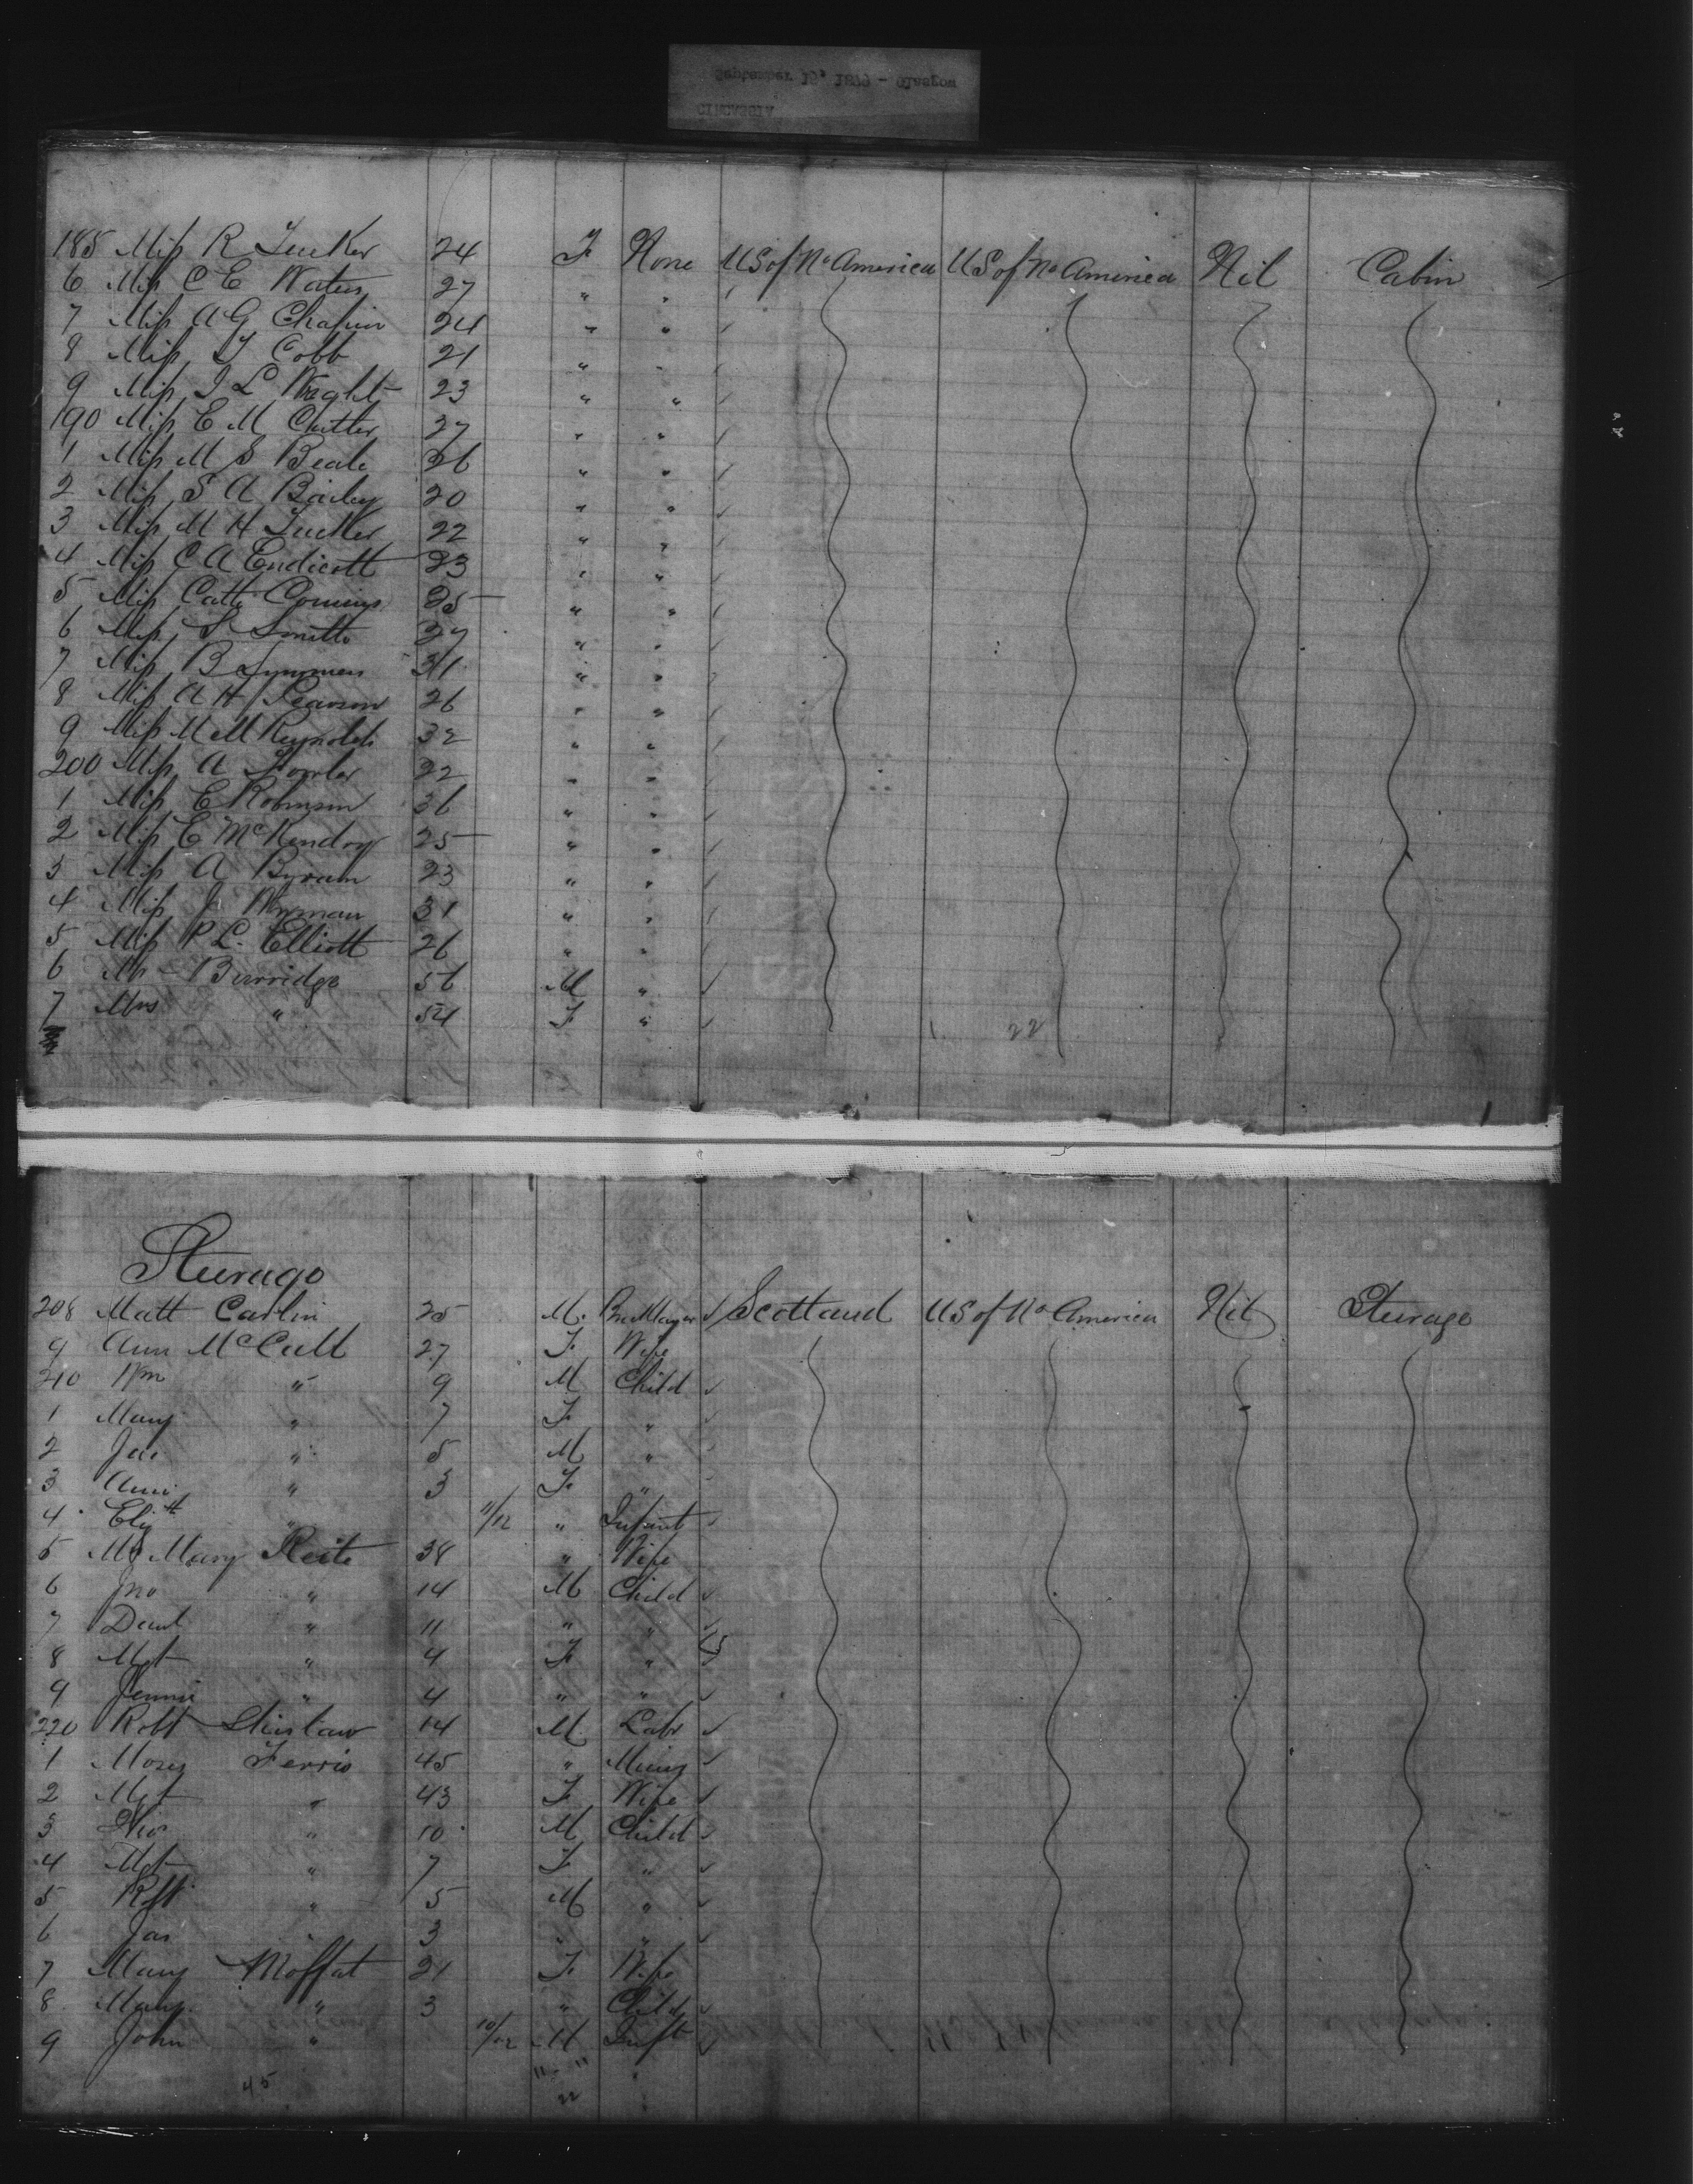 September 15, 1879 - Glasgow
CIRCASSIA
185 Miss R Tucker 24 F None US of No America US of No America Nil Cabin
6 Miss C E Waters 27 " "
7 Miss A G Chapin 24 " "
8 Miss Cobb 21 " "
9 Miss I L Wight 23 " "
190 Miss E M Cutler 27 " "
1 Miss M S Beale 26 " "
2 Miss S A Bailey 20 " "
3 Miss M H Tucker 22 " "
4 Miss C A Endicott 23 " "
5 Miss Catte 25 " "
6 Miss S Smith 27 " "
7 Miss B Symmes 31 " "
8 Miss A H Pearson 26 " "
9 Miss M M Reynolds 32 " "
200 Miss A Fowler 22 " "
1 Miss E Robinson 36 " "
2 Miss E McKendry 25 " "
3 Miss A Byram 23 " "
4 Miss J Wyman 31 " "
5 Miss P L Elliott 26 " "
6 Mr Burridge 56 M "
7 Mrs " 54 F "
22
Steerage
208 Matt Carlin 25 M. Bricklayer Scotland US of No America Nil Steerage
9 Ann McCall 27 F Wife
210 Wm " 9 M Child
1 Mary " 7 F "
2 Jas " 5 M "
3 Ann " 3 F "
4 Elizth " 11/12 " Infant
5 Mrs Mary 38 " Wife
6 Jno " 14 M Child
7 Danl " 11 " "
8 Mgt " 4 F "
9 Jennie " 4 " "
220 Robt 14 M Labr
1 Moses Ferris 45 "
2 Mgt " 43 F Wife
3 " 10 M Child
4 Mgt " 7 F "
5 Robt " 5 M "
6 Jas " 3 " "
7 Mary Moffat 21 F Wife
8 Mary " 3 " Child
9 John " 10/12 M Inft
45